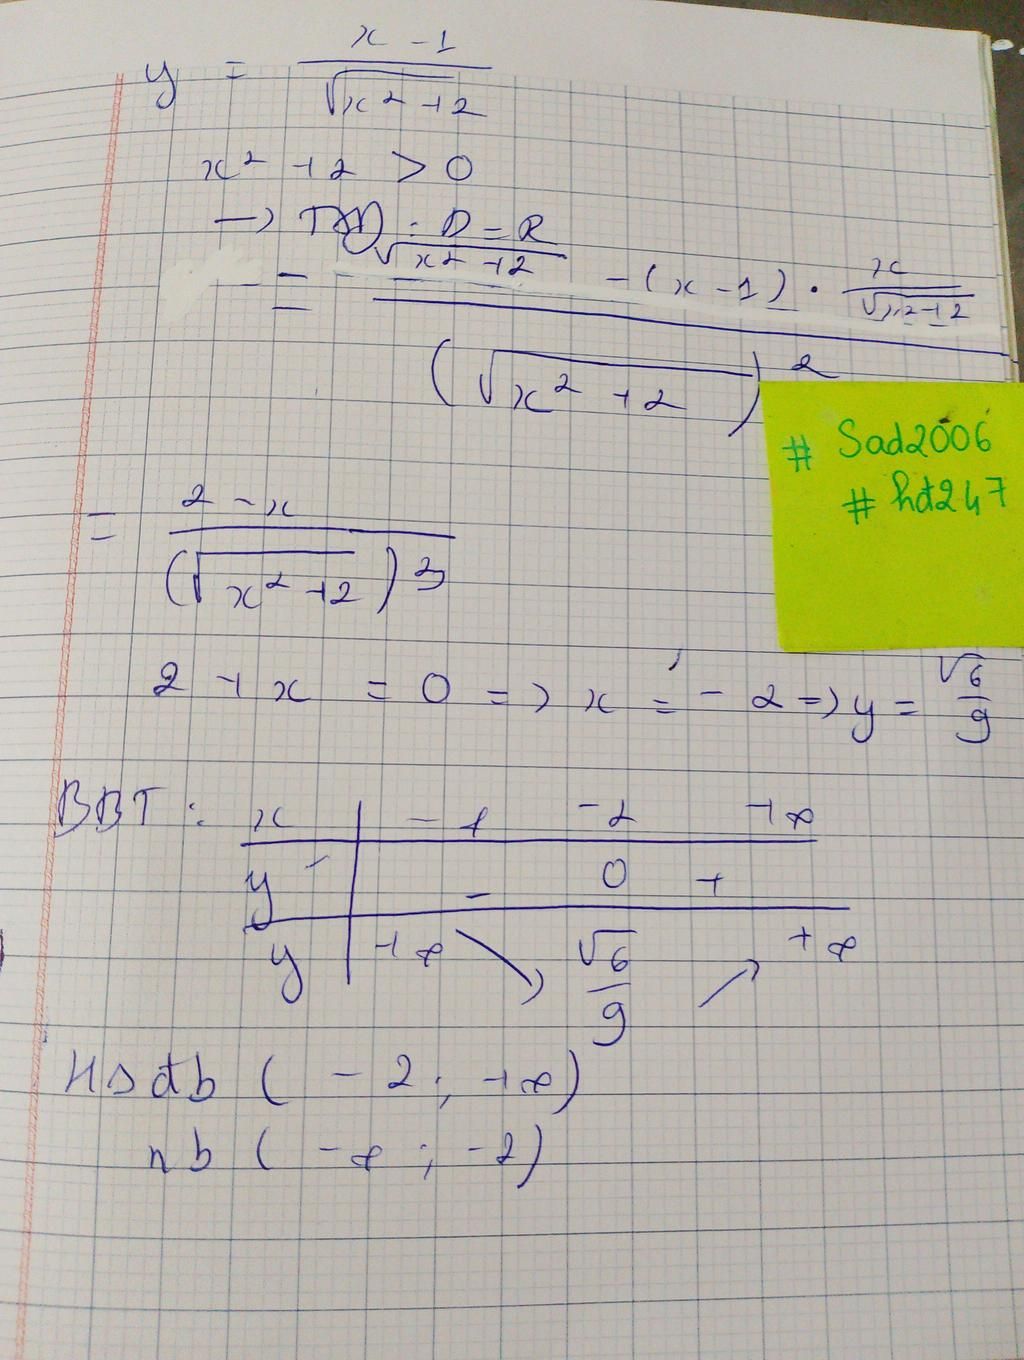 y = (x - 1) / √(x² + 2)
x² + 2 > 0
→ TXĐ : D = R
= (√(x² + 2) - (x - 1) · x / √(x² + 2)) / (√(x² + 2))²
# Sad2006
# hđ247
= (2 - x) / (√(x² + 2))³
2 + x = 0 => x = - 2 => y = √6 / 9
BBT : x | -∞ -2 +∞
y' | - 0 +
y | +∞ ↘ √6 / 9 ↗ +∞
HSđb ( - 2 ; +∞)
nb ( -∞ ; -2)